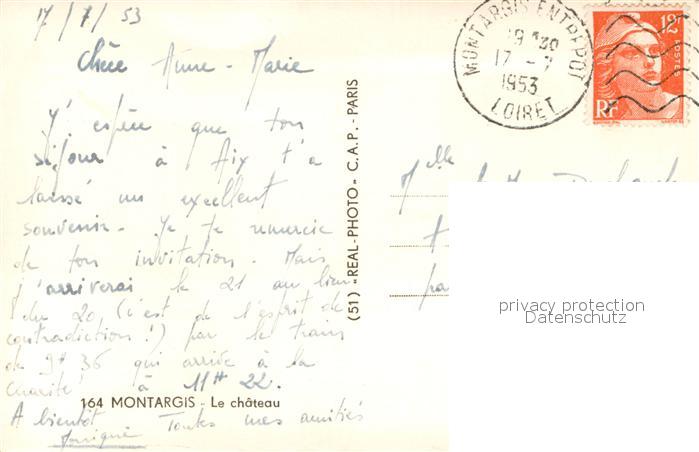 17/7/53
Chère Anne-Marie
J'espère que ton
séjour à Aix t'a
laissé un excellent
souvenir. Je te remercie
de ton invitation. Mais
j'arriverai le 21 au lieu
du 20, (c'est de l'esprit de
contradiction!) par le train
de 9H 36 qui arrive à la
Charité à 11H 22.
A bientôt Toutes mes amitiés
Monique
164 MONTARGIS - Le château
(51) REAL-PHOTO - C.A.P. - PARIS
MONTARGIS ENTREPOT
17 - 7
1953
LOIRET
12F
POSTES
RF
Melle
privacy protection
Datenschutz